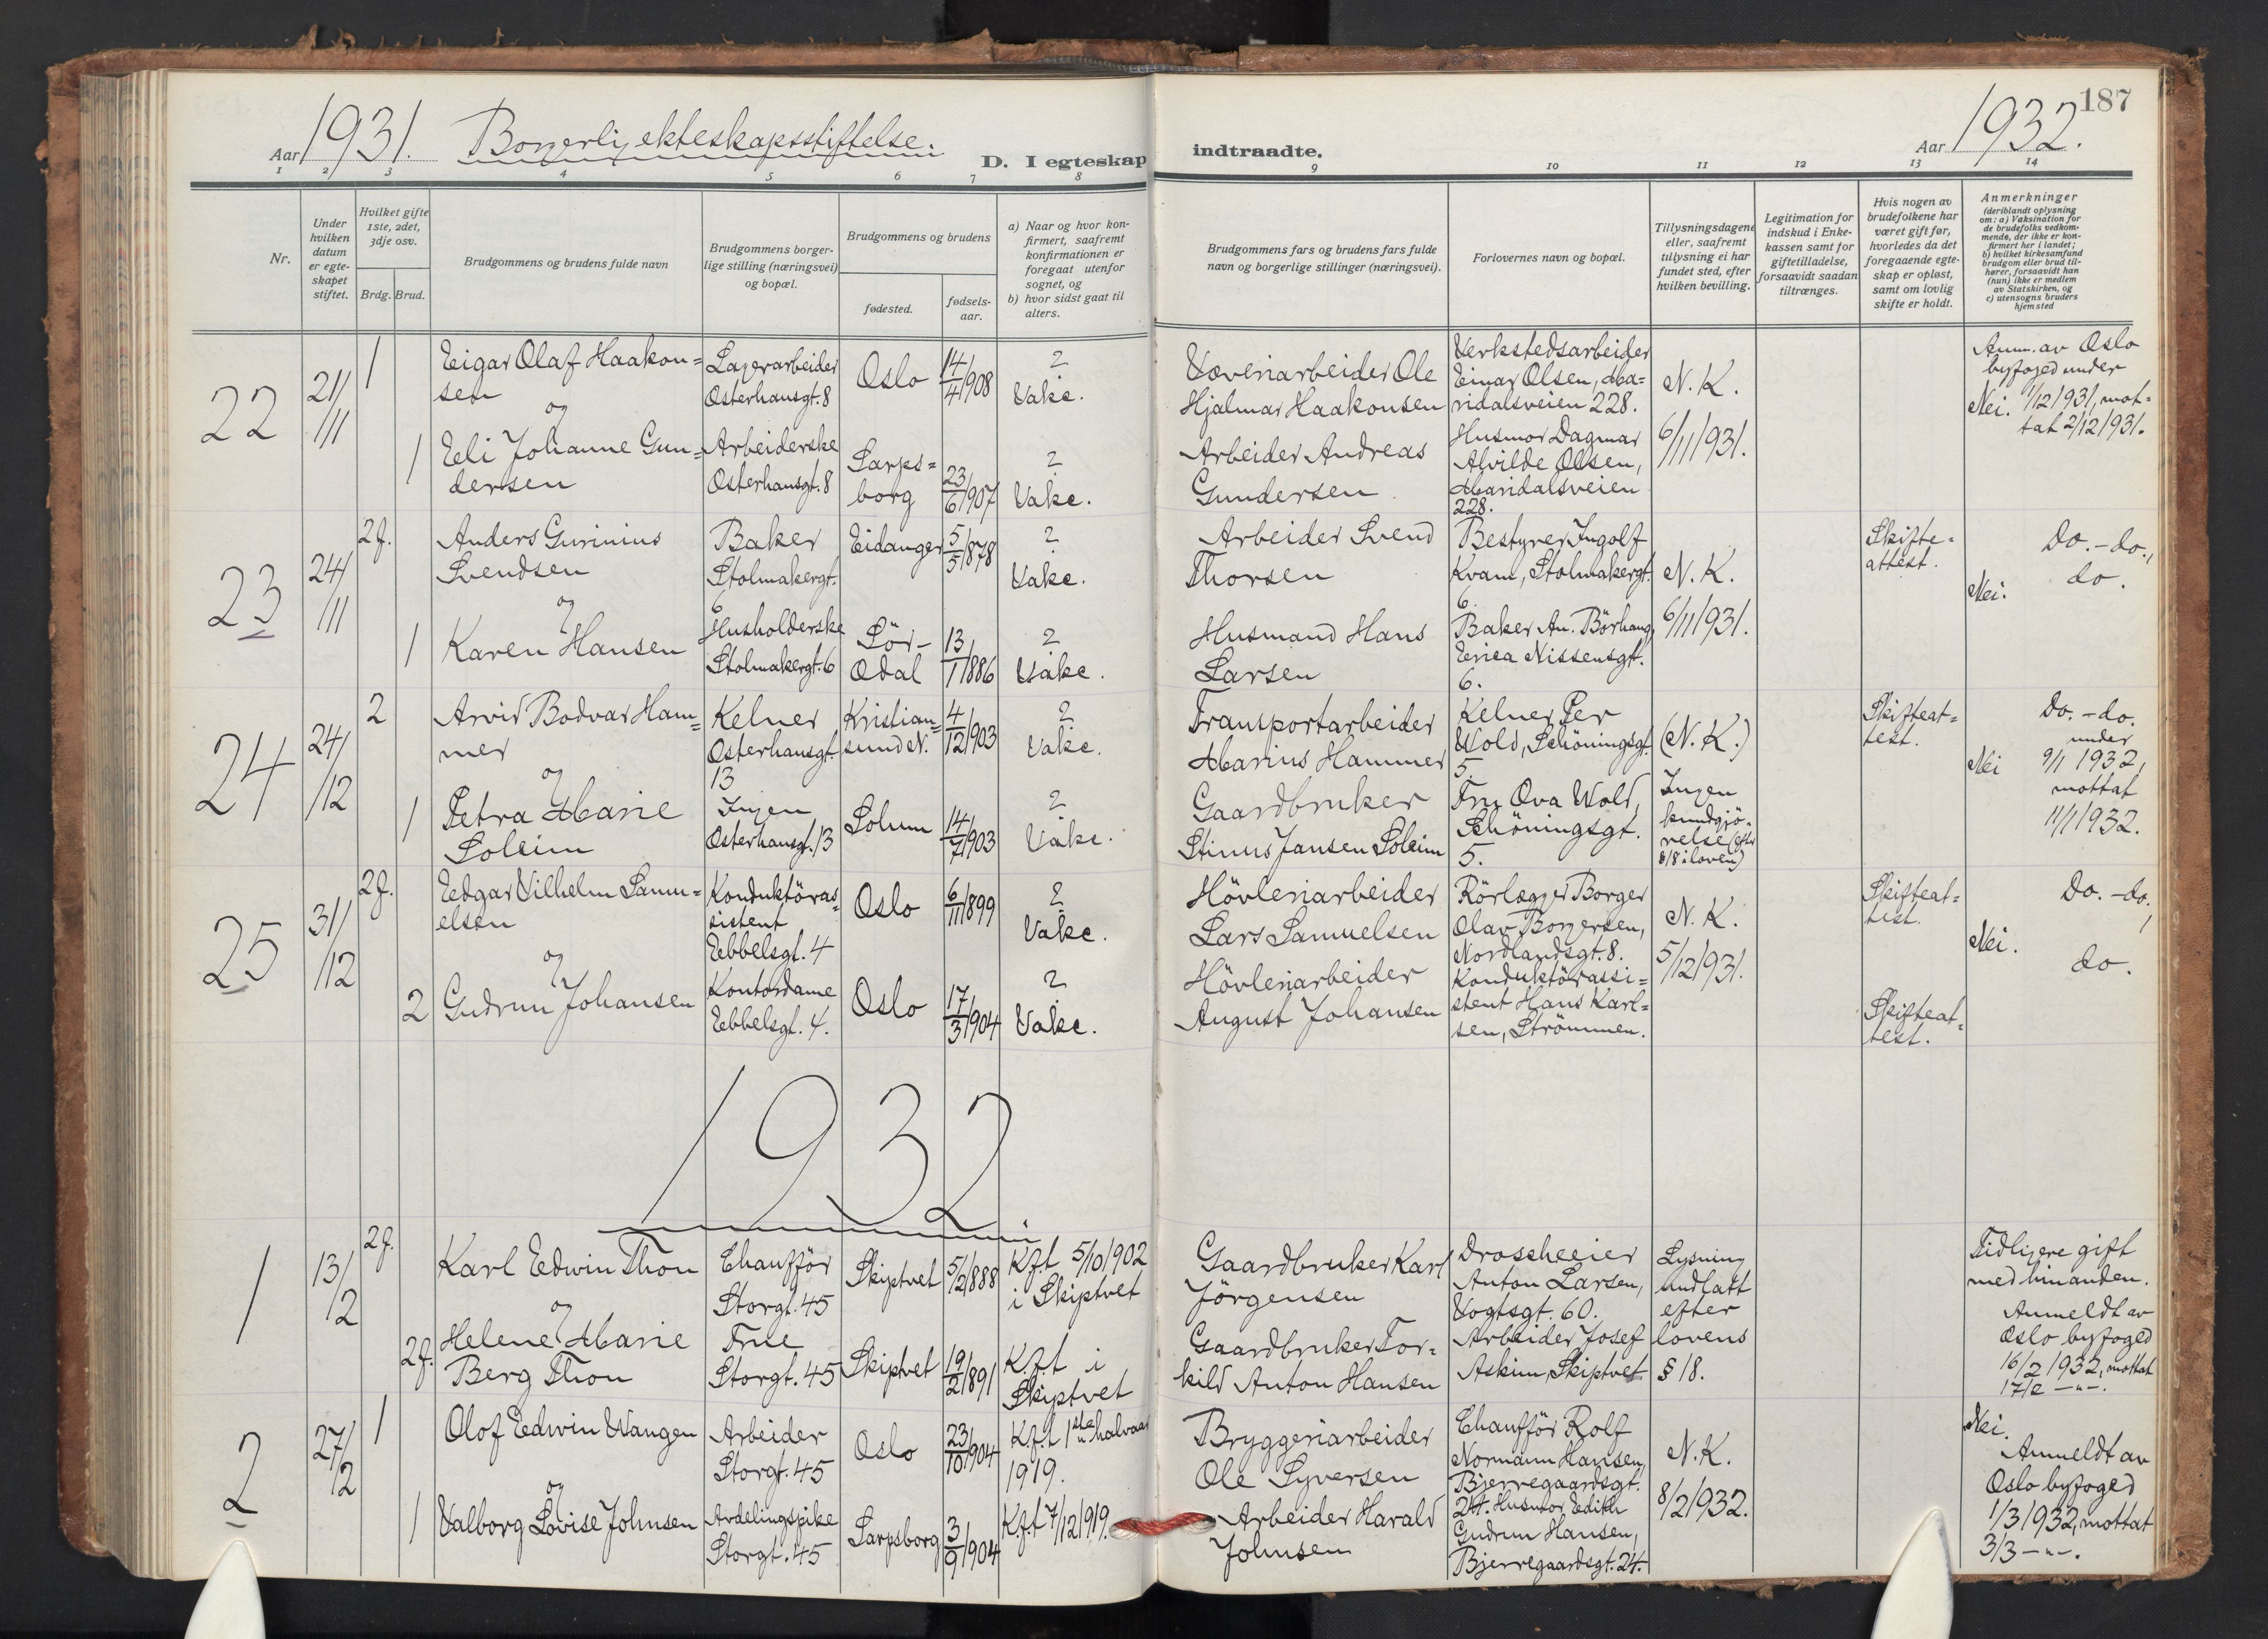 187
Aar 1931. Borgerlig ekteskapsstiftelse.
D. I egteskap indtraadte.
Aar 1932.
1 2 3 4 5 6 7 8 9 10 11 12 13 14
Nr.
Under
hvilken
datum
er egte-
skapet
stiftet.
Hvilket gifte
1ste, 2det,
3dje osv.
Brdg. Brud.
Brudgommens og brudens fulde navn
Brudgommens borger-
lige stilling (næringsvei)
og bopæl.
Brudgommens og brudens
fødested.
fødsels-
aar.
a) Naar og hvor kon-
firmert, saafremt
konfirmationen er
foregaat utenfor
sognet, og
b) hvor sidst gaat til
alters.
Brudgommens fars og brudens fars fulde
navn og borgerlige stillinger (næringsvei).
Forlovernes navn og bopæl.
Tillysningsdagene
eller, saafremt
tillysning ei har
fundet sted, efter
hvilken bevilling.
Legitimation for
indskud i Enke-
kassen samt for
giftetilladelse,
forsaavidt saadan
tiltrænges.
Hvis nogen av
brudefolkene har
været gift før,
hvorledes da det
foregaaende egte-
skap er opløst,
samt om lovlig
skifte er holdt.
Anmerkninger
(deriblandt oplysning
om: a) Vaksination for
de brudefolks vedkom-
mende, der ikke er kon-
firmert her i landet;
b) hvilket kirkesamfund
brudgom eller brud til-
hører, forsaavidt han
(hun) ikke er medlem
av Statskirken, og
c) utensogns bruders
hjemsted
22
21/
/11
1
Eigar Olaf Haakon=
sen
og
Lagerarbeider
Osterhausgt. 8
Oslo
14/4 1908
?
Vake.
Væveriarbeider Ole
Hjalmar Haakonsen
Verkstedsarbeider
Einar Olsen, Ma=
ridalsveien 228.
N. K.
6/11 1931.
Anm. av Oslo
byfoged under
Nei. 1/12 1931, mot=
tat 2/12 1931.
1
Eli Johanne Gun=
dersen
Arbeiderske
Osterhausgt. 8
Sarps=
borg
23/6 1907
?
Vake.
Arbeider Andreas
Gundersen
Husmor Dagmar
Alvilde Olsen,
Maridalsveien
228.
23
24/
/11
2 f.
Anders Gurinius
Svendsen
og
Baker
Stolmakergt.
6
Eidanger
5/5 1878
?
Vake.
Arbeider Svend
Thorsen
Bestyrer Ingolf
Kvam, Stolmakergt.
6.
N. K.
6/11 1931.
Skifte=
attest.
Do. - do.,
Nei. do.
1
Karen Hansen
Husholderske
Stolmakergt. 6
Sör-
Odal
13/1 1886
?
Vake.
Husmand Hans
Larsen
Baker An. Börhaug,
Erica Nissensgt.
6.
24
24/
/12
2
Arvid Bodvar Ham=
mer
og
Kelner
Osterhausgt.
13
Kristian=
sund N.
4/12 1903
?
Vake.
Transportarbeider
Marius Hammer
Kelner Per
Wold, Schöningsgt.
5.
(N. K.)
Ingen
kundgjö-
relse (efter
§ 18 i loven)
Skifteat=
test.
Do. - do.
under
Nei 9/1 1932,
mottat
11/1 1932.
1
Petra Marie
Soleim
Ingen
Osterhausgt. 13
Solum
14/7 1903
?
Vake.
Gaardbruker
Stinus Jansen Soleim
Fru Ova Wold,
Schöningsgt.
5.
25
31/
/12
2 f.
Edgar Vilhelm Samu=
elsen
og
Konduktöras=
sistent
Ebbelsgt. 4
Oslo
6/11 1899
?
Vake.
Hövleriarbeider
Lars Samuelsen
Rörlægger Borger
Olav Borgersen,
Nordlandsgt. 8.
N. K.
5/12 1931.
Skifteat=
test.
Do. - do.,
Nei. do.
2
Gudrun Johansen
Kontordame
Ebbelsgt. 4.
Oslo
17/3 1904
?
Vake.
Hövleriarbeider
August Johansen
Konduktörassi=
stent Hans Karl=
sen, Strömmen.
Skifteat=
test.
1932
1
13/
/2
2 f.
Karl Edwin Thon
og
Chaufför
Storgt. 45
Skiptvet
5/2 1888
Kft 5/10 1902
i Skiptvet
Gaardbruker Karl
Jörgensen
Droscheeier
Anton Larsen,
Vogtsgt. 60.
Lysning
undlatt
efter
lovens
§ 18.
Tidligere gift
med hinanden.
Anmeldt av
Oslo byfoged
16/2 1932, mottat
17/2 -"-.
2 f.
Helene Marie
Berg Thon
Frue
Storgt. 45
Skiptvet
19/2 1891
K.f.t i
Skiptvet
Gaardbruker Tor=
kild Anton Hansen
Arbeider Josef
Askim, Skiptvet
2
27/
/2
1
Olof Edwin Wangen
og
Arbeider
Storgt. 45
Oslo
23/10 1904
K.f.t 1ste halvaar
1919.
Bryggeriarbeider
Ole Syversen
Chaufför Rolf
Normann Hansen,
Bjerregaardsgt.
24. Husmor Edith
Gudrun Hansen,
Bjerregaardsgt. 24.
N. K.
8/2 1932.
Nei.
Anmeldt av
Oslo byfoged
1/3 1932, mottat
3/3 -"-.
1
Valborg Lovise Johnsen
Avdelingspike
Storgt. 45
Sarpsborg
3/9 1904
K.f.t 7/12 1919.
Arbeider Harald
Johnsen